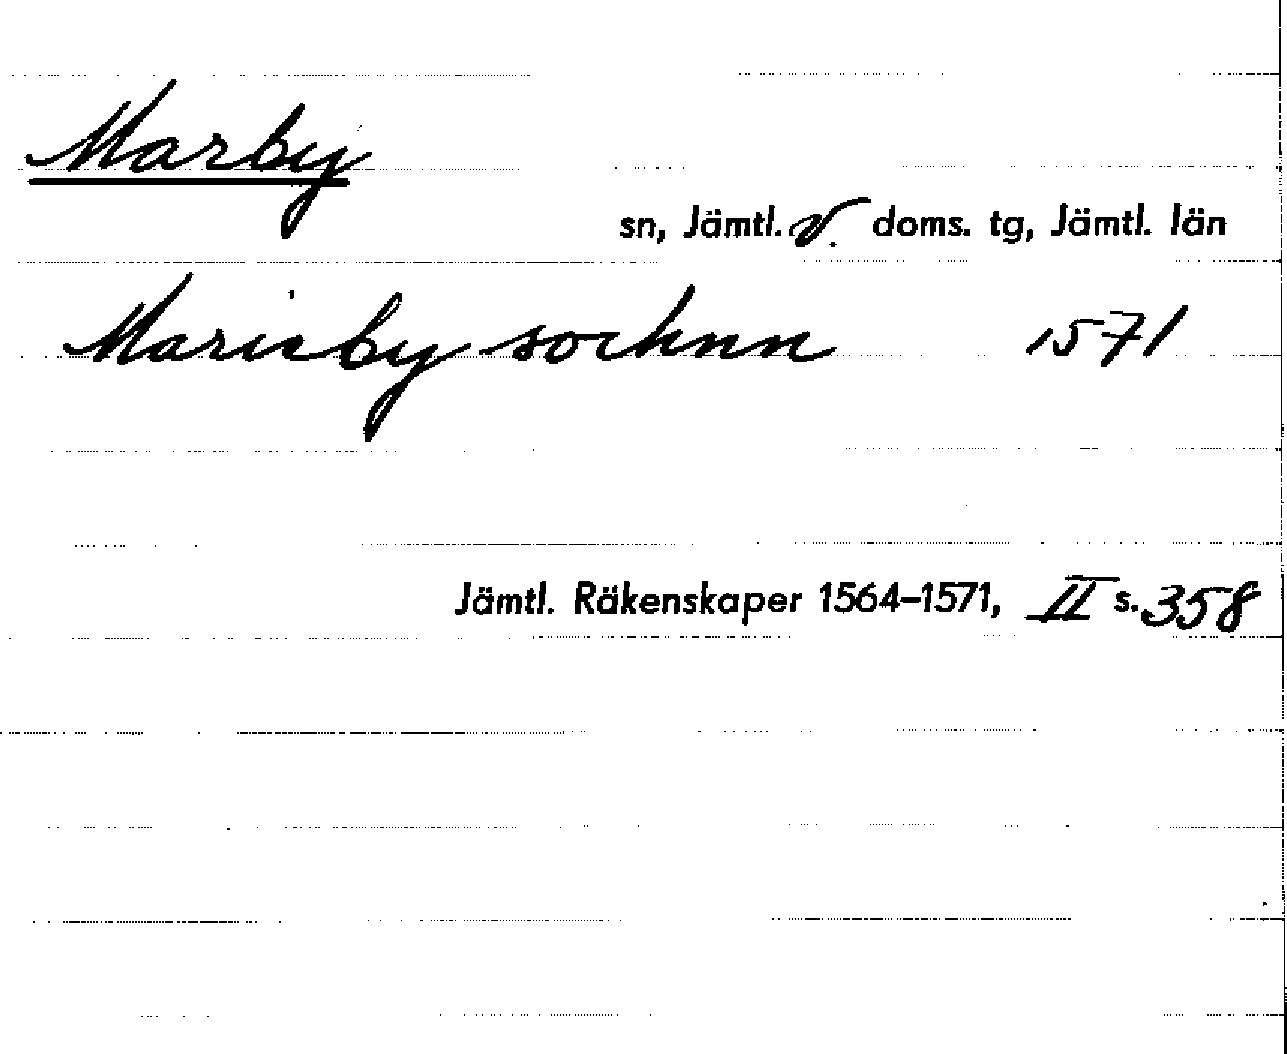 Marby
sn, Jämtl. v. doms. tg, Jämtl. län
Marisby sochnn 1571
Jämtl. Räkenskaper 1564–1571, II s. 358